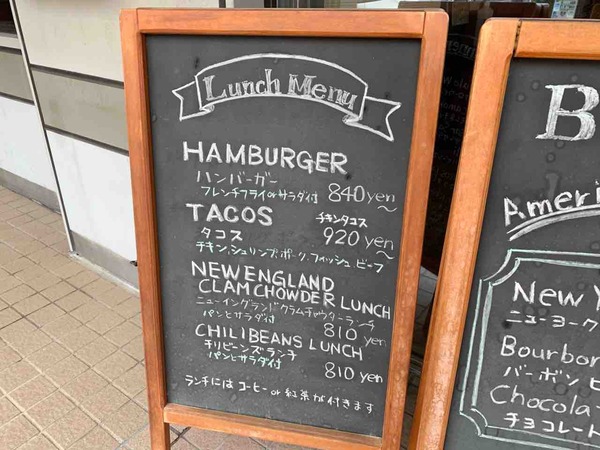 Lunch Menu
HAMBURGER
ハンバーガー
フレンチフライorサラダ付 840yen〜
TACOS チキンタコス
タコス 920yen〜
チキン,シュリンプ,ポーク,フィッシュ,ビーフ
NEW ENGLAND
CLAM CHOWDER LUNCH
ニューイングランドクラムチャウダーランチ
パンとサラダ付 810yen
CHILI BEANS LUNCH
チリビーンズランチ
パンとサラダ付 810yen
ランチには コーヒー or 紅茶が付きます
B
Ameri
New Y
ニューヨーク
Bourbon
バーボン ピ
Chocola
チョコレート